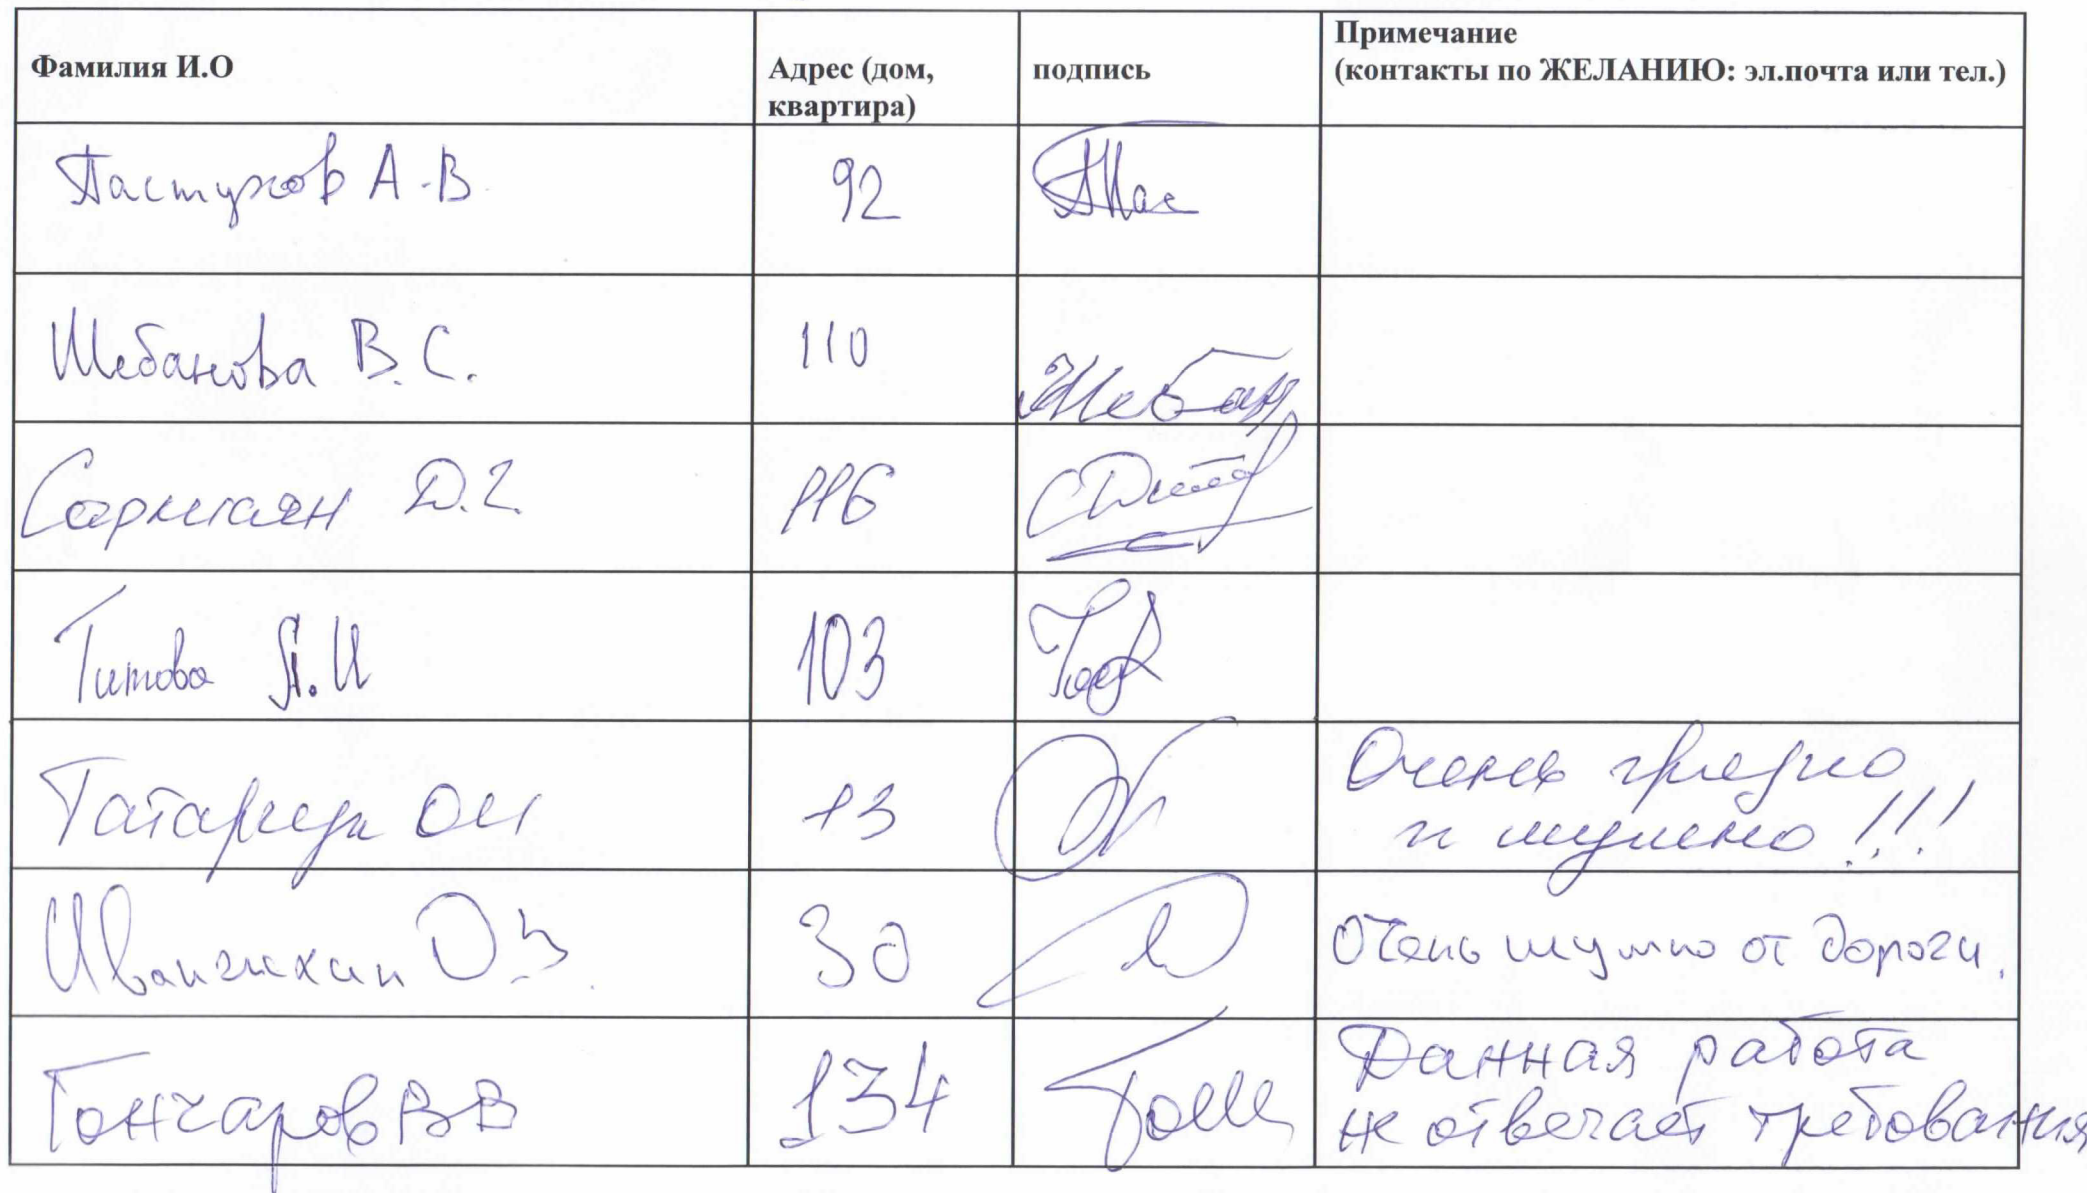 Фамилия И.О
Адрес (дом,
квартира)
подпись
Примечание
(контакты по ЖЕЛАНИЮ: эл.почта или тел.)
Пастухов А.В
92
Шебанова В.С.
110
Шебан
Саркисян Д.Г.
116
Титова Я.И
103
Татариди ОИ
13
Очень грязно
и шумно!!!
30
Очень шумно от дороги.
Гончаров ВВ
134
Данная работа
не отвечает требования